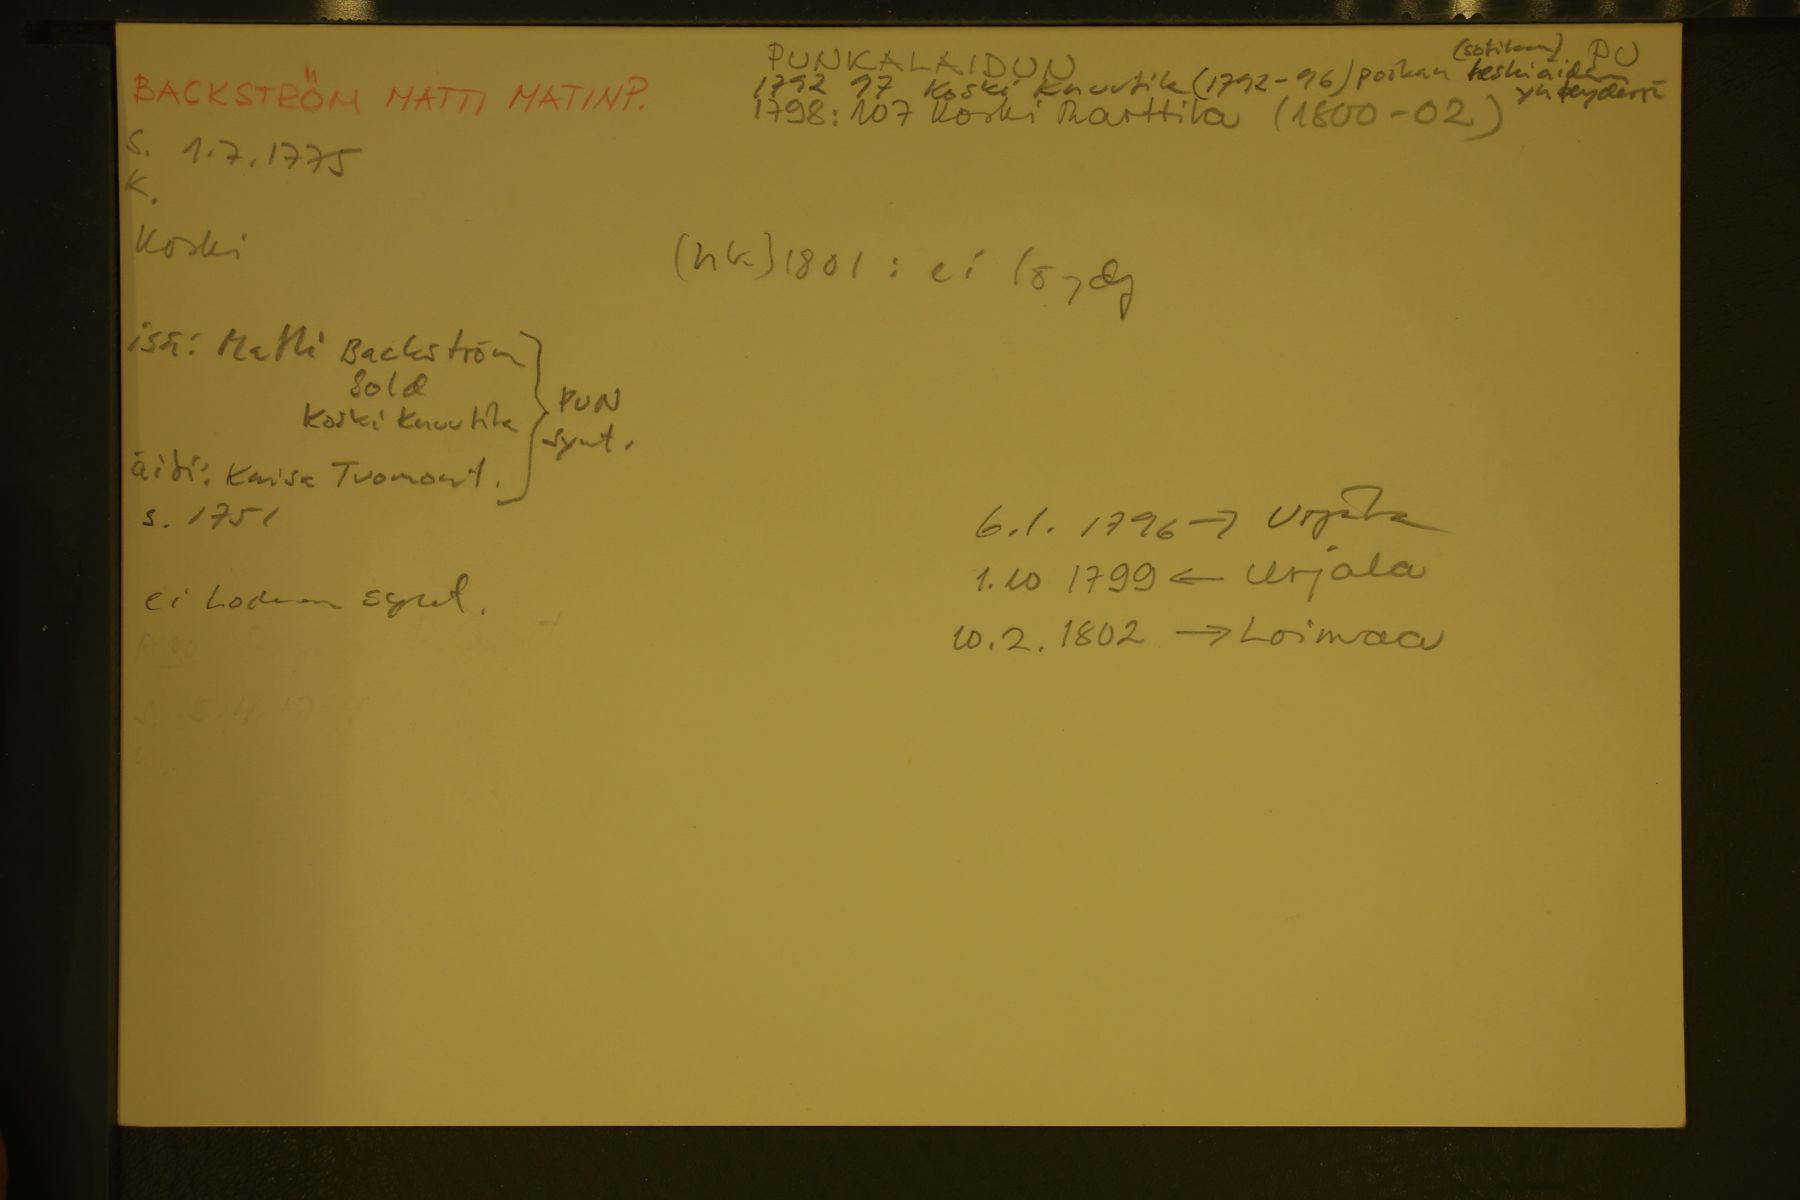 BACKSTRÖM MATTI MATINP.
S. 1.7.1775
K.
Koski
isä: Matti Backström
Sold
Koski Knuutila
äiti: Kaisa Tuomont.
s. 1751
PUN
synt.
ei Lodman synt.
PUNKALAIDUN
PU
1792 97 Koski Knuutila (1792-96) poikan (sotilaan) leskiäidin
yhteydessä
1798: 107 Koski Marttila (1800-02)
(hk) 1801: ei löydy
6.1. 1796 → Urjala
1.10 1799 ← Urjala
10.2. 1802 → Loimaa